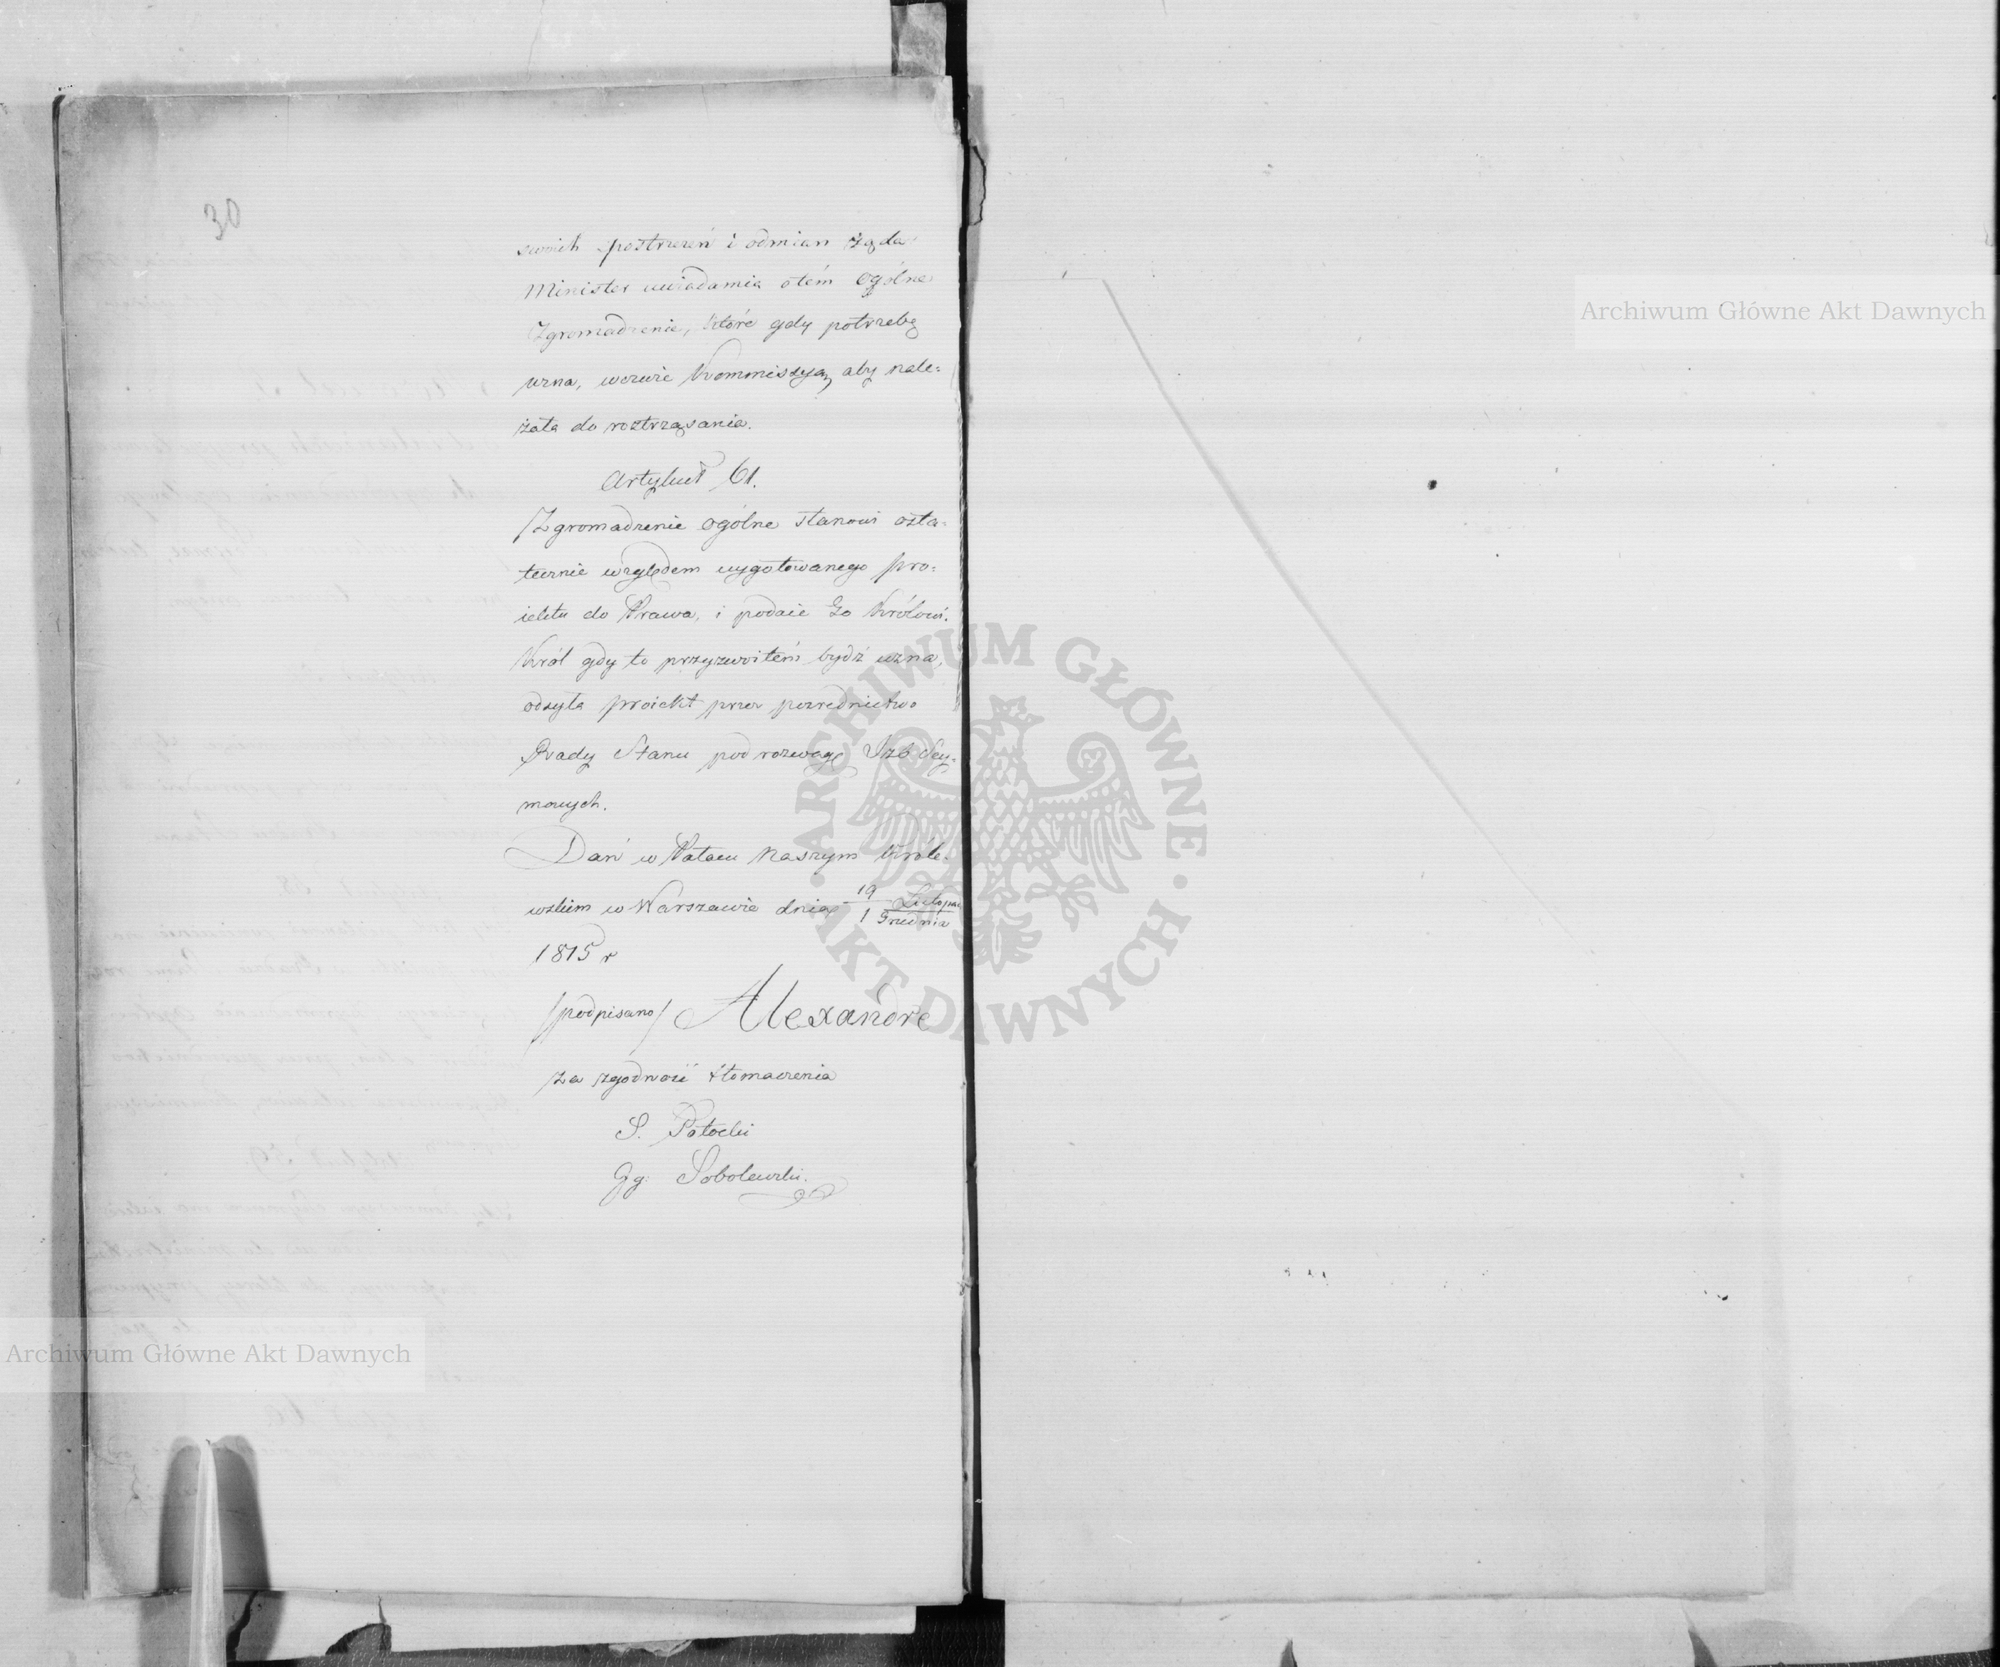 30
swoich postrzeżeń i odmian żąda
Minister uwiadamia otém Ogólne
Zgromadzenie, które gdy potrzebę
uzna, wezwie Kommissyą, aby nale=
żała do roztrząsania.
Artykuł 61.
Zgromadzenie ogólne stanowi osta=
tecznie względem wygotowanego pro=
iektu do Prawa, i podaie Go Królowi.
Król gdy to przyzwoitém bydź uzna,
odsyła proiekt przez pośrednictwo
Rady Stanu pod rozwagę Izb Sey=
mowych.
Dań w Pałacu Naszym Króle=
wskim w Warszawie dnia 19 Listopa
1 Grudnia
1815 r
/podpisano/ Alexandre
za zgodność tłomaczenia
S. Potocki
Jg: Sobolewski.
Archiwum Główne Akt Dawnych
Archiwum Główne Akt Dawnych
ARCHIWUM GŁÓWNE · AKT DAWNYCH ·